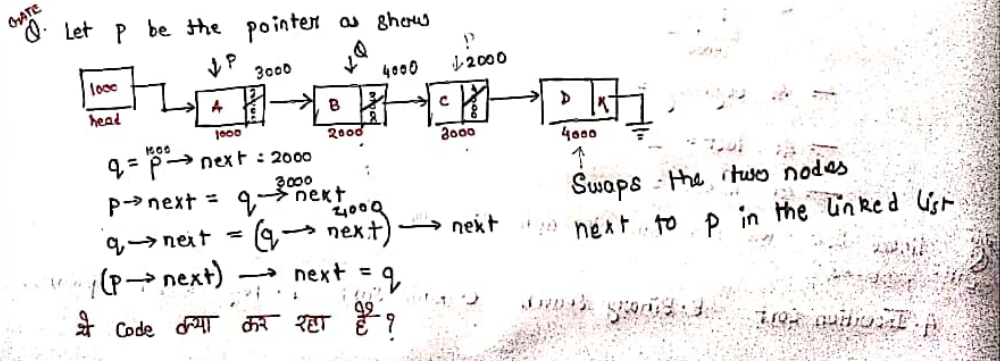 GATE
Q. Let P be the pointer as show
↓P 3000 ↓Q 4000 P ↓2000
1000 A B C D
head 1000 2000 3000 4000
q = p → next : 2000
1000
p→next = q → next
3000
q → next = (q → next) → next
4000
(p → next) → next = q
ये Code क्या कर रहा है ?
Swaps the two nodes
next to p in the linked list